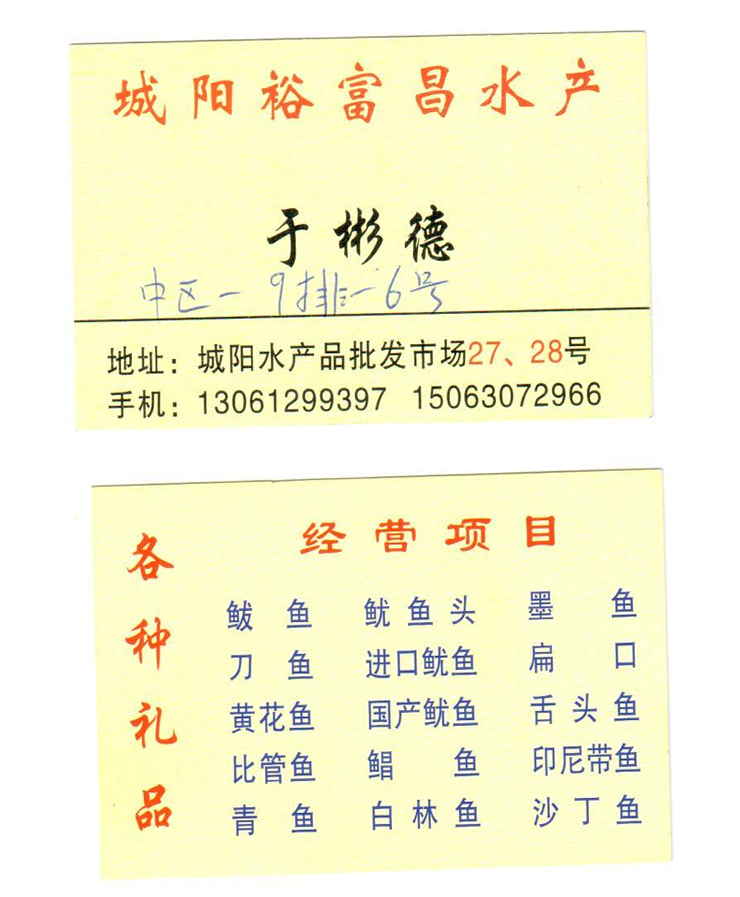 城阳裕富昌水产
于彬德
中区-9排-6号
地址：城阳水产品批发市场27、28号
手机：13061299397 15063072966
各种礼品
经营项目
鲅鱼 鱿鱼头 墨鱼
刀鱼 进口鱿鱼 扁口
黄花鱼 国产鱿鱼 舌头鱼
比管鱼 鲳鱼 印尼带鱼
青鱼 白林鱼 沙丁鱼